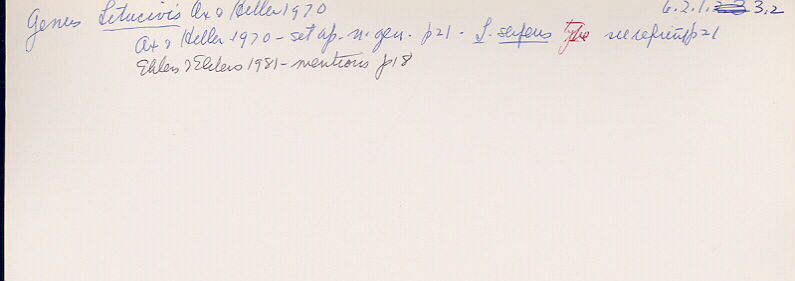 Genus Litucivis Ax & Heller 1970 6.2.1.3.2
Ax & Heller 1970 - set up n. gen. p21. L. serpens type see reprint p21
Ehlers & Ehlers 1981 - mentions p18